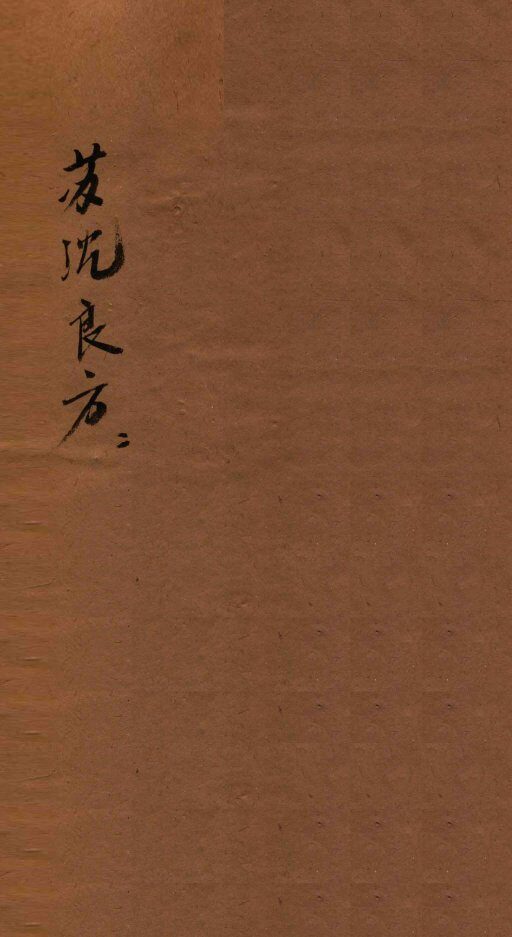 苏沈良方 二